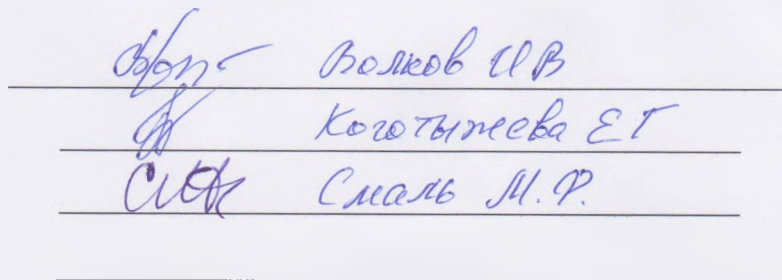 Волков И В
Коготыжева Е Г
Смаль М.Ф.